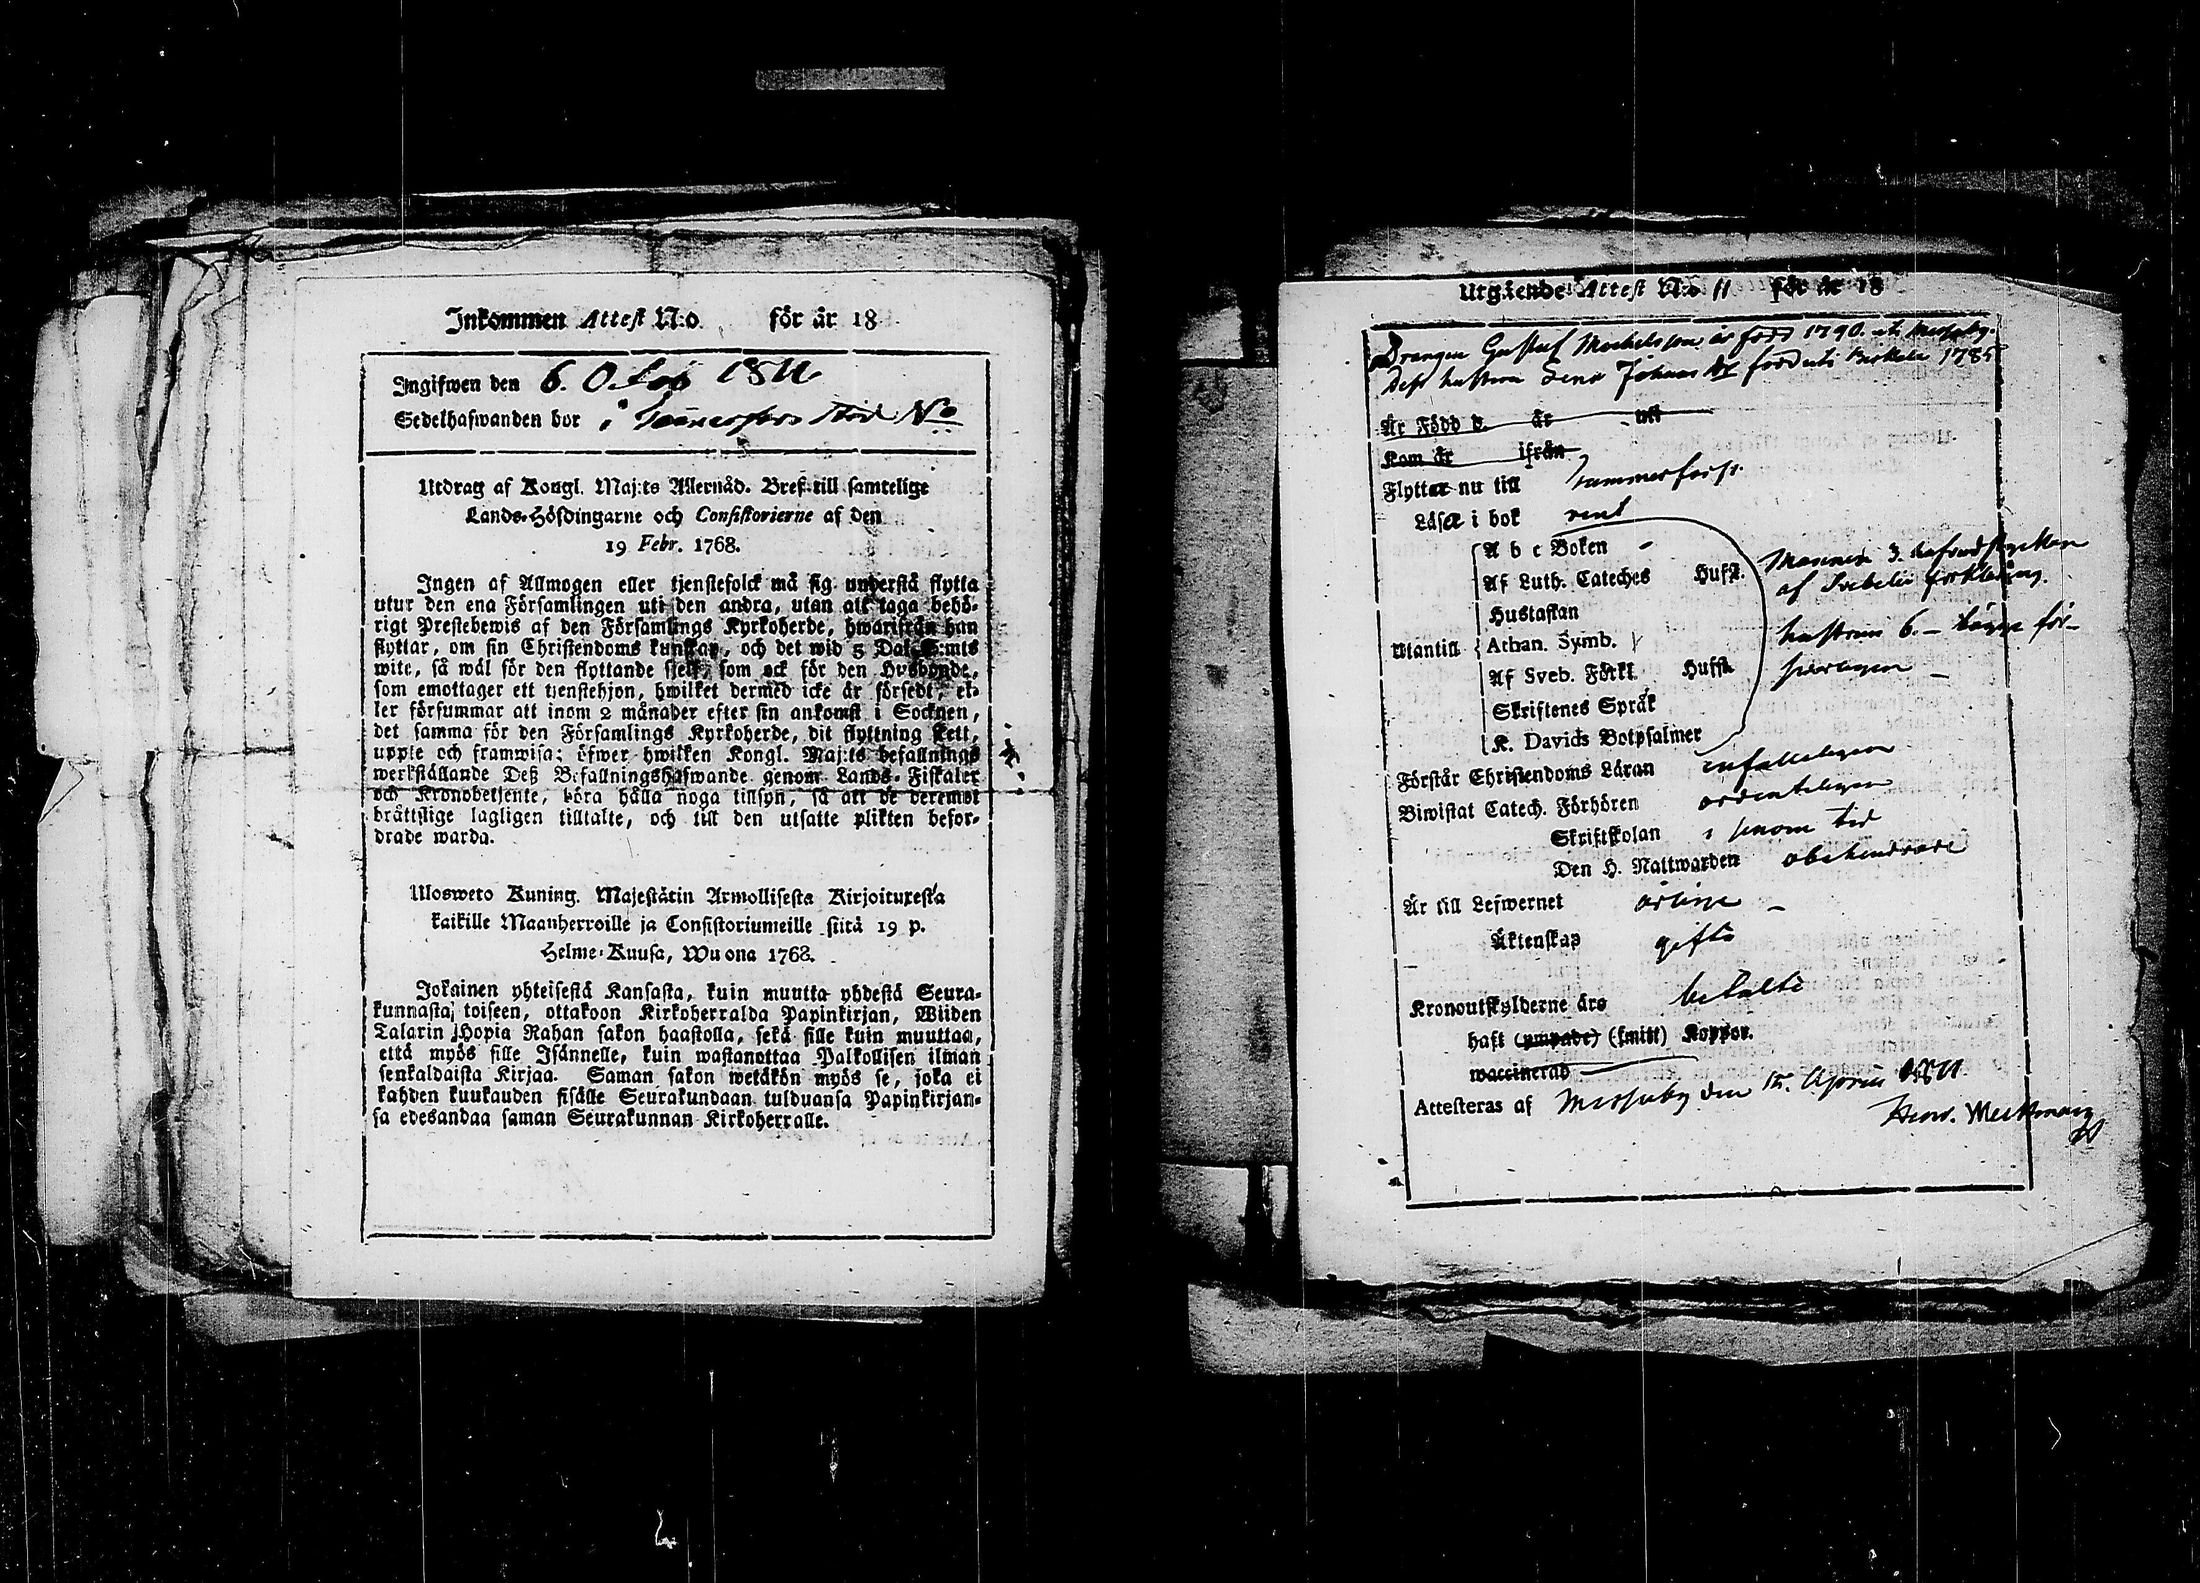 Inkommen Attest N:o för år 18
Ingifwen den 6. 1811
Sedelhafwanden bor i N:o
Utdrag af Kongl. Maj:ts Allernåd. Bref till samtelige
Lands-Höfdingarne och Consistorierne af den
19 Febr. 1768.
Ingen af Allmogen eller tjenstefolck må sig understå flytta
utur den ena Församlingen uti den andra, utan att taga behö-
rigt Prestebewis af den Församlings Kyrkoherde, hwarifrån han
flyttar, om sin Christendoms kunskap, och det wid 5 Dal. S:mts
wite, så wäl för den flyttande sjelf, som ock för den Husbonde,
som emottager ett tjenstehjon, hwilket dermed icke är försedt, el-
ler försummar att inom 2 månader efter sin ankomst i Socknen,
det samma för den Församlings Kyrkoherde, dit flyttning skett,
uppte och framwisa; öfwer hwilken Kongl. Maj:ts befallnings
werkställande Deß Befallningshafwande genom Lands-Fiskaler
och Kronobetjente, böra hålla noga tillsyn, så att de deremot
brättslige lagligen tilltalte, och till den utsatte plikten befor-
drade warda.
Ulosweto Kuning. Majestätin Armollisesta Kirjoituxesta
kaikille Maanherroille ja Consistoriumeille siitä 19 p.
Helme-Kuusa, Wuona 1768.
Jokainen yhteisestä Kansasta, kuin muutta yhdestä Seura-
kunnasta toiseen, ottakoon Kirkoherralda Papinkirjan, Wiiden
Talarin Hopia Rahan sakon haastolla, sekä sille kuin muuttaa,
että myös sille Isännelle, kuin wastanottaa Palkollisen ilman
senkaldaista Kirjaa. Saman sakon wetäkön myös se, joka ei
kahden kuukauden sisälle Seurakundaan tulduansa Papinkirjan-
sa edesandaa saman Seurakunnan Kirkoherralle.
Utgående Attest N:o 11 för år 18
Drängen Gustaf Michelsson är född 1790. uti Messuby.
Deß hustru Lena Johans Dr född uti 1785
Är Född d. år uti
Kom år ifrån
Flyttar nu till Tammerfors.
Läser i bok rent
Utantill
A b c Boken
Af Luth. Cateches Hufst.
Hustaflan
Athan. Symb.
Af Sveb. Förkl. Hufst.
Skriftenes Språk
K. Davids Botpsalmer
Mannen 3. hufvudstycken
af Svebelii förklaring.
hustrun 6. –
Förstår Christendoms Läran enfalleligen
Biwistat Catech. Förhören ordenteligen
Skriftskolan i tid
Den H. Nattwarden obehindrade
Är till Lefwernet ärlige –
Äktenskap gifte
Kronoutskylderne äro betalte
haft (ympade) (smitt) Koppor.
waccinerad
Attesteras af Messuby den 15. April 1811